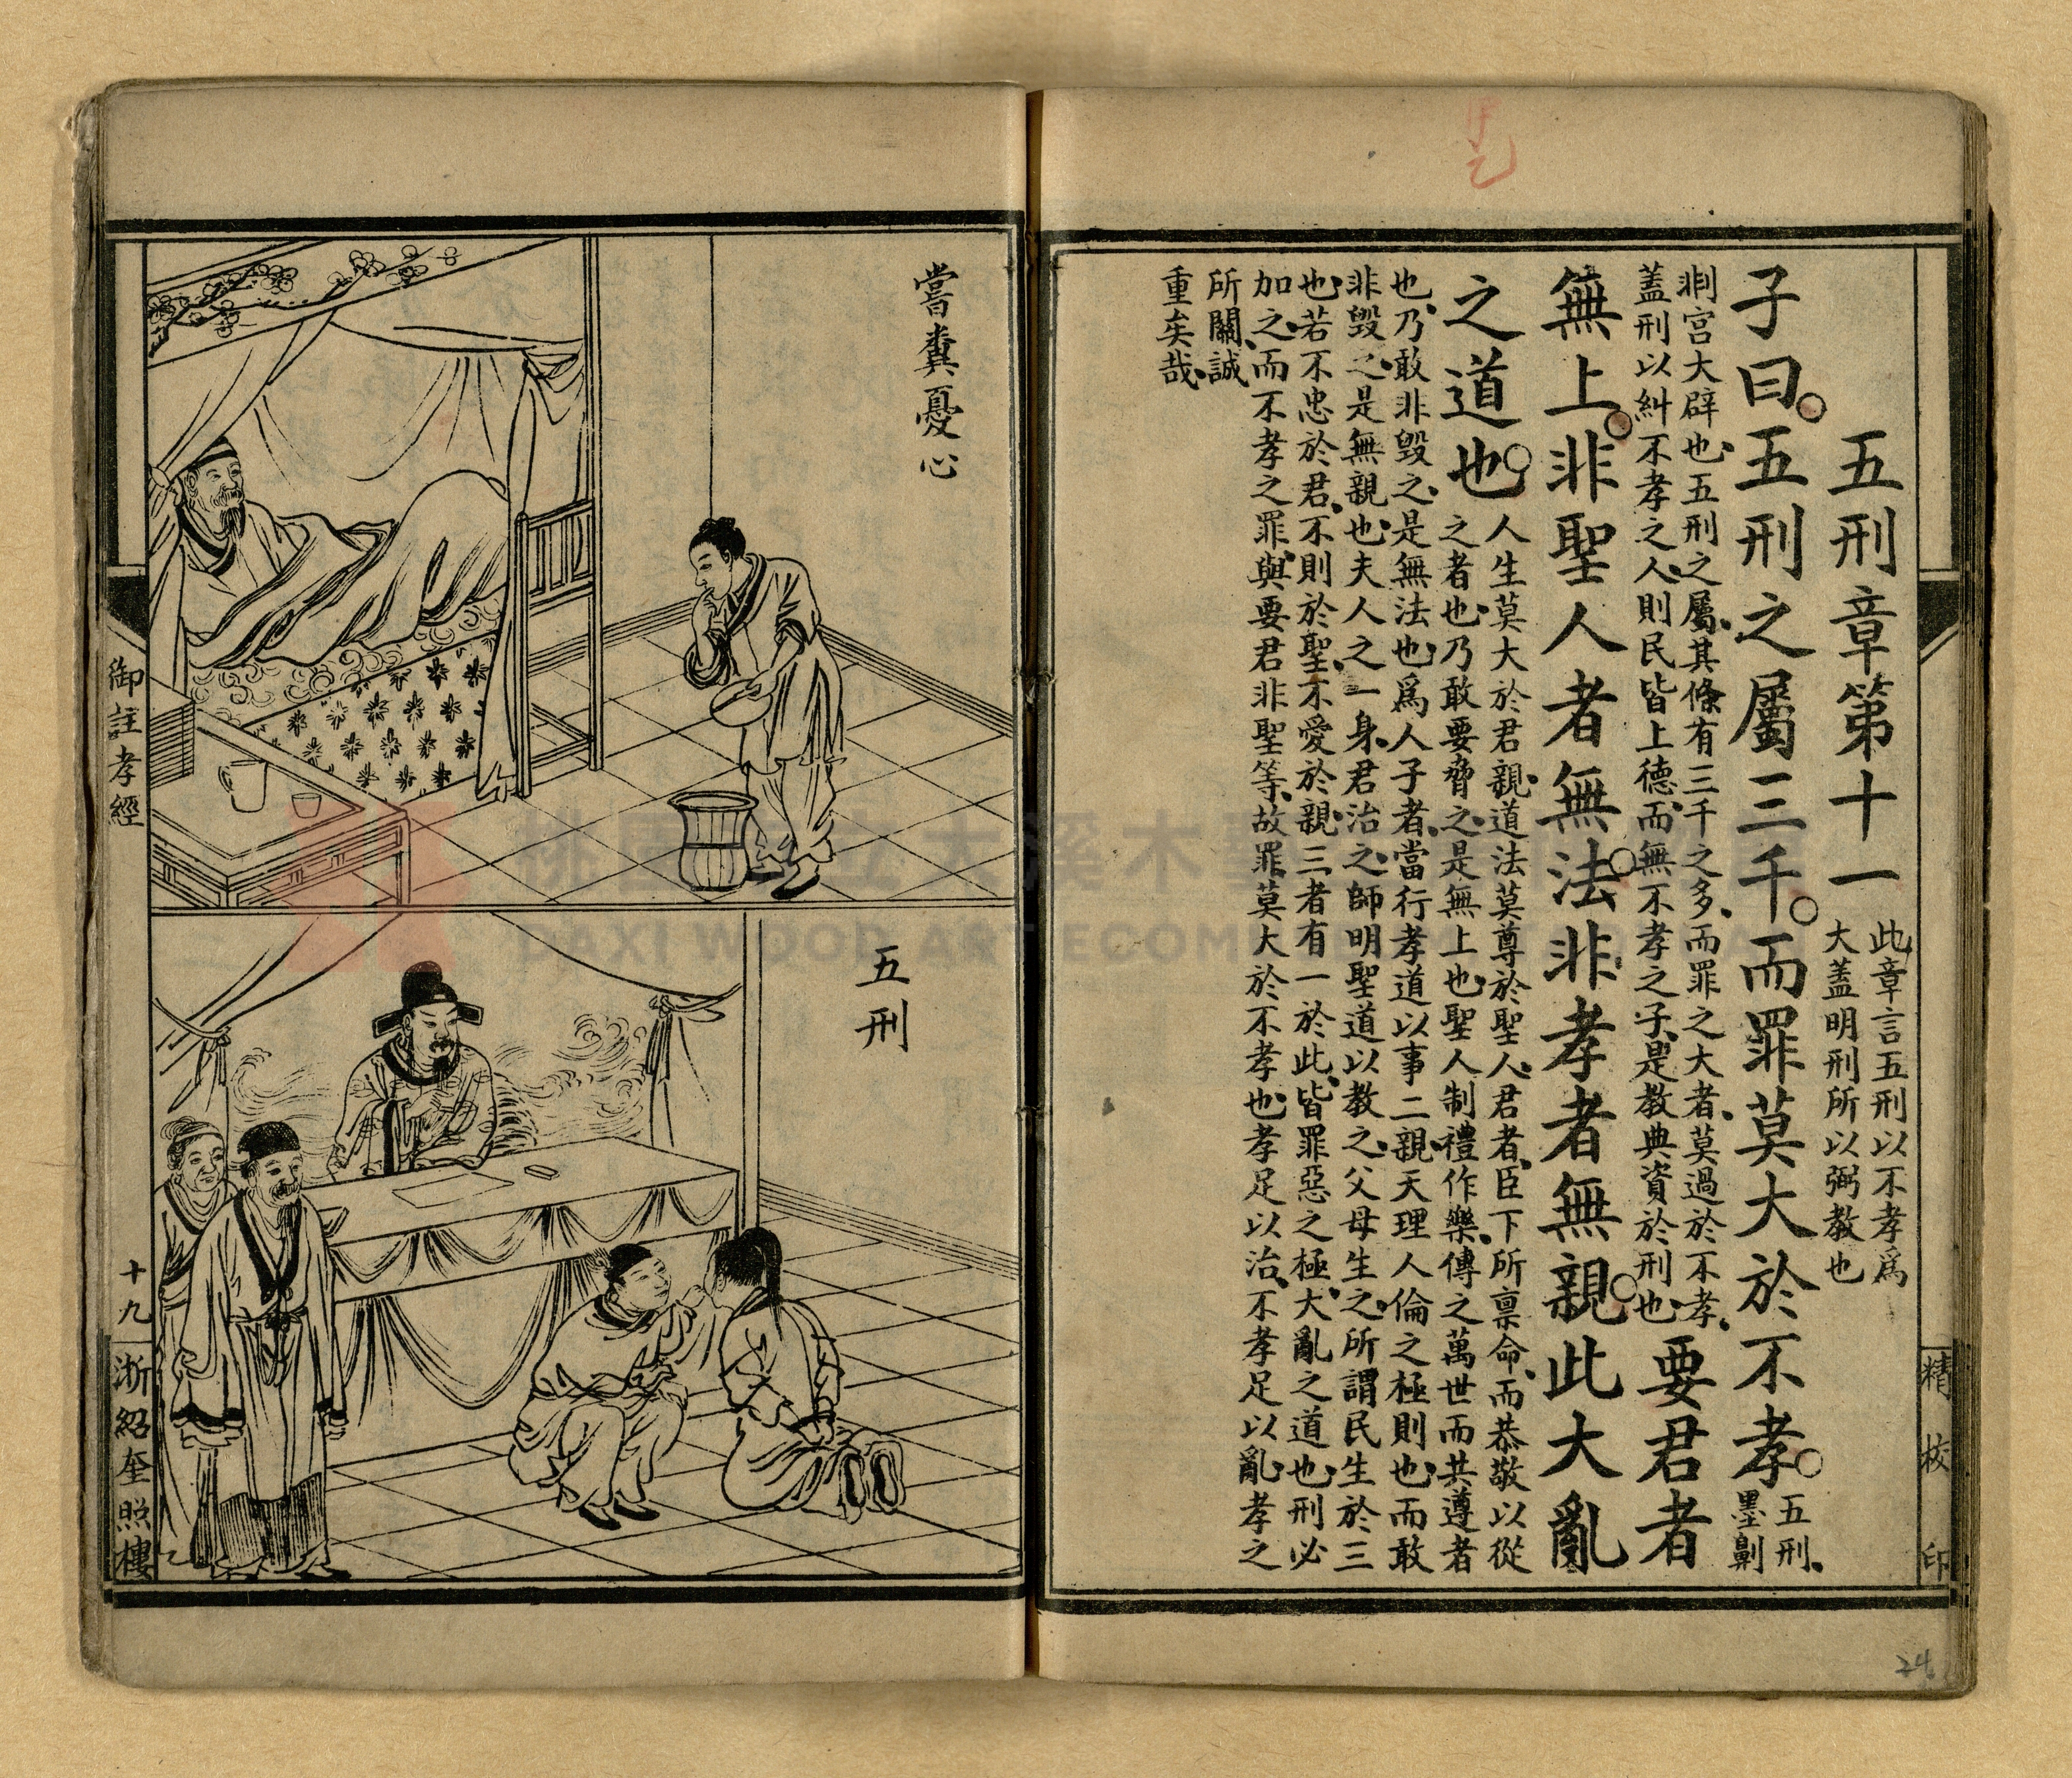 精校印
五刑章第十一
此章言五刑以不孝爲
大蓋明刑所以弼教也
子曰。五刑之屬三千。而罪莫大於不孝。
五刑、
墨劓
剕宫大辟也、五刑之屬、其條有三千之多、而罪之大者、莫過於不孝、
蓋刑以糾不孝之人、則民皆上德、而無不孝之子、是教典資於刑也、
要君者
無上。非聖人者無法。非孝者無親。此大亂
之道也。
人生莫大於君親、道法莫尊於聖人、君者、臣下所禀命、而恭敬以從
之者也、乃敢要脅之、是無上也、聖人制禮作樂、傳之萬世而共遵者
也、乃敢非毀之、是無法也、爲人子者、當行孝道以事二親、天理人倫之極則也、而敢
非毀之、是無親也、夫人之一身、君治之、師明聖道以教之、父母生之、所謂民生於三
也、若不忠於君、不則於聖、不愛於親、三者有一於此、皆罪惡之極、大亂之道也、刑必
加之、而不孝之罪、與要君非聖等、故罪莫大於不孝也、孝足以治、不孝足以亂、孝之
所關、誠
重矣哉、
24
嘗糞憂心
五刑
御註孝經
十九
浙紹奎照樓
桃園市立大溪木藝生態博物館
DAXI WOOD ART ECOMUSEUM